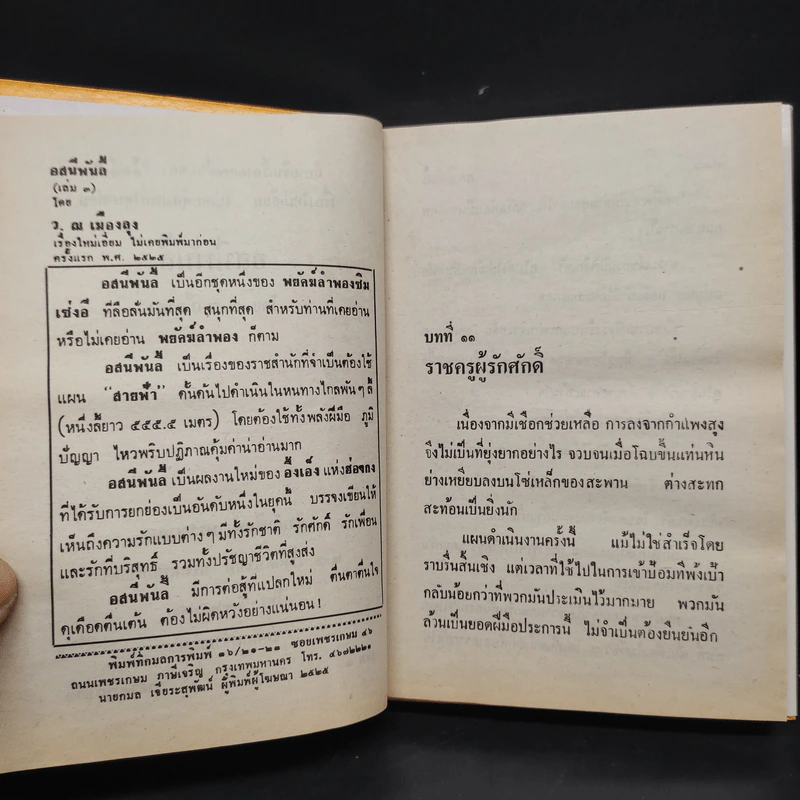 อสนีพันลี้
(เล่ม ๓)
โดย
ว. ณ เมืองลุง
เรื่องใหม่เอี่ยม ไม่เคยพิมพ์มาก่อน
ครั้งแรก พ.ศ. ๒๕๒๕
อสนีพันลี้ เป็นอีกชุดหนึ่งของ พยัคฆ์ลำพองซิม
เซ่งอี ที่ลือลั่นมันที่สุด สนุกที่สุด สำหรับท่านที่เคยอ่าน
หรือไม่เคยอ่าน พยัคฆ์ลำพอง ก็ตาม
อสนีพันลี้ เป็นเรื่องของราชสำนักที่จำเป็นต้องใช้
แผน "สายฟ้า" ดั้นด้นไปดำเนินในหนทางไกลพันๆลี้
(หนึ่งลี้ยาว ๕๕๕.๕ เมตร) โดยต้องใช้ทั้งพลังฝีมือ ภูมิ
ปัญญา ไหวพริบปฏิภาณคุ้มค่าน่าอ่านมาก
อสนีพันลี้ เป็นผลงานใหม่ของ อึ้งเอ็ง แห่งฮ่องกง
ที่ได้รับการยกย่องเป็นอันดับหนึ่งในยุคนี้ บรรจงเขียนให้
เห็นถึงความรักแบบต่างๆ มีทั้งรักชาติ รักศักดิ์ รักเพื่อน
และรักที่บริสุทธิ์ รวมทั้งปรัชญาชีวิตที่สูงส่ง
อสนีพันลี้ มีการต่อสู้ที่แปลกใหม่ ตื่นตาตื่นใจ
ดุเดือดตื่นเต้น ต้องไม่ผิดหวังอย่างแน่นอน!
พิมพ์ที่กมลการพิมพ์ ๑๖/๒๐-๒๑ ซอยเพชรเกษม ๔๖
ถนนเพชรเกษม ภาษีเจริญ กรุงเทพมหานคร โทร. ๔๖๗๒๒๒๑
นายกมล เชียระสุพัฒน์ ผู้พิมพ์ผู้โฆษณา ๒๕๒๕
บทที่ ๑๑
ราชครูผู้รักศักดิ์
เนื่องจากมีเชือกช่วยเหลือ การลงจากกำแพงสูง
จึงไม่เป็นที่ยุ่งยากอย่างไร จวบจนเมื่อโฉบขึ้นแท่นหิน
ย่างเหยียบลงบนโซ่เหล็กของสะพาน ต่างสะทก
สะท้อนเป็นยิ่งนัก
แผนดำเนินงานครั้งนี้ แม้ไม่ใช่สำเร็จโดย
ราบรื่นสิ้นเชิง แต่เวลาที่ใช้ไปในการเข้าป้อมที่พังเป้า
กลับน้อยกว่าที่พวกมันประเมินไว้มากมาย พวกมัน
ล้วนเป็นยอดฝีมือประการนี้ ไม่จำเป็นต้องยืนยันอีก